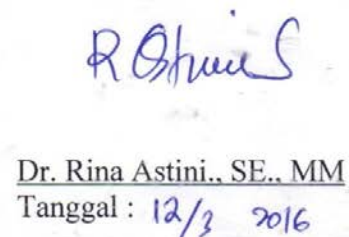 R Astini
Dr. Rina Astini., SE., MM
Tanggal : 12/3 2016